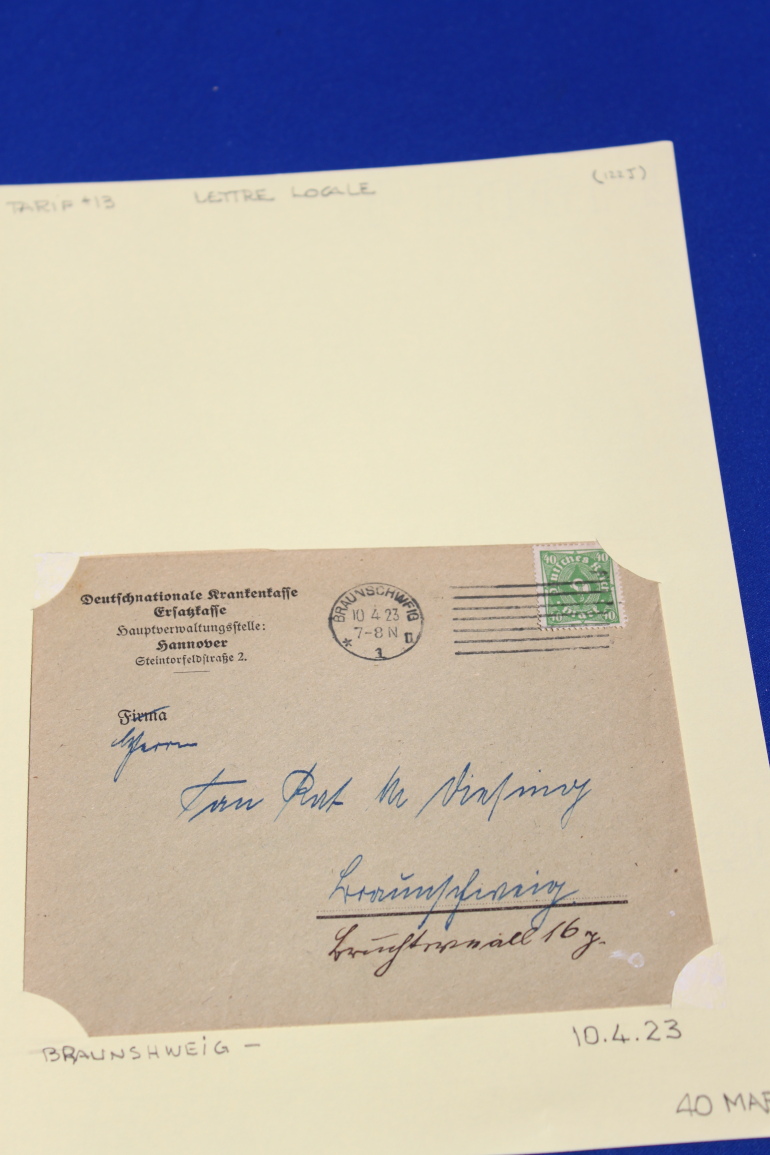 TARIF #13 LETTRE LOCALE (122J)
Deutschnationale Krankenkasse
Ersatzkasse
Hauptverwaltungsstelle:
Hannover
Steintorfeldstraße 2.
BRAUNSCHWEIG
10 4 23
7-8 N
* 1 n
40 40
Deutsches
40 40
Firma
Herrn
San Rat Dr Diesing
Braunschweig
Bruchtorwall 16
BRAUNSHWEIG - 10.4.23
40 MAR